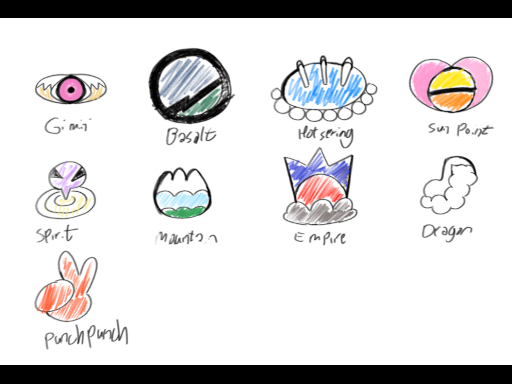 Basalt
Hotsering
Sun Point
Spirit
Mountain
Empire
Dragon
PunchPunch